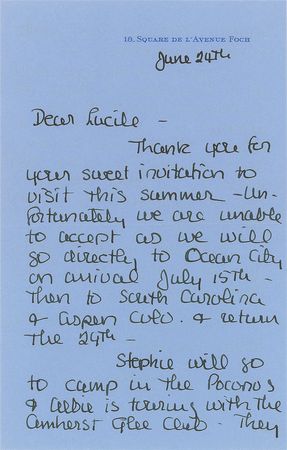 18, SQUARE DE L'AVENUE FOCH
June 24th
Dear Lucile -
Thank you for
your sweet invitation to
visit this summer - Un-
fortunately we are unable
to accept as we will
go directly to Ocean City
on arrival July 15th -
Then to South Carolina
& Aspen Colo. & return
the 24th -
Stephie will go
to camp in the Poconos
& Albie is touring with the
Amherst Glee Club - They